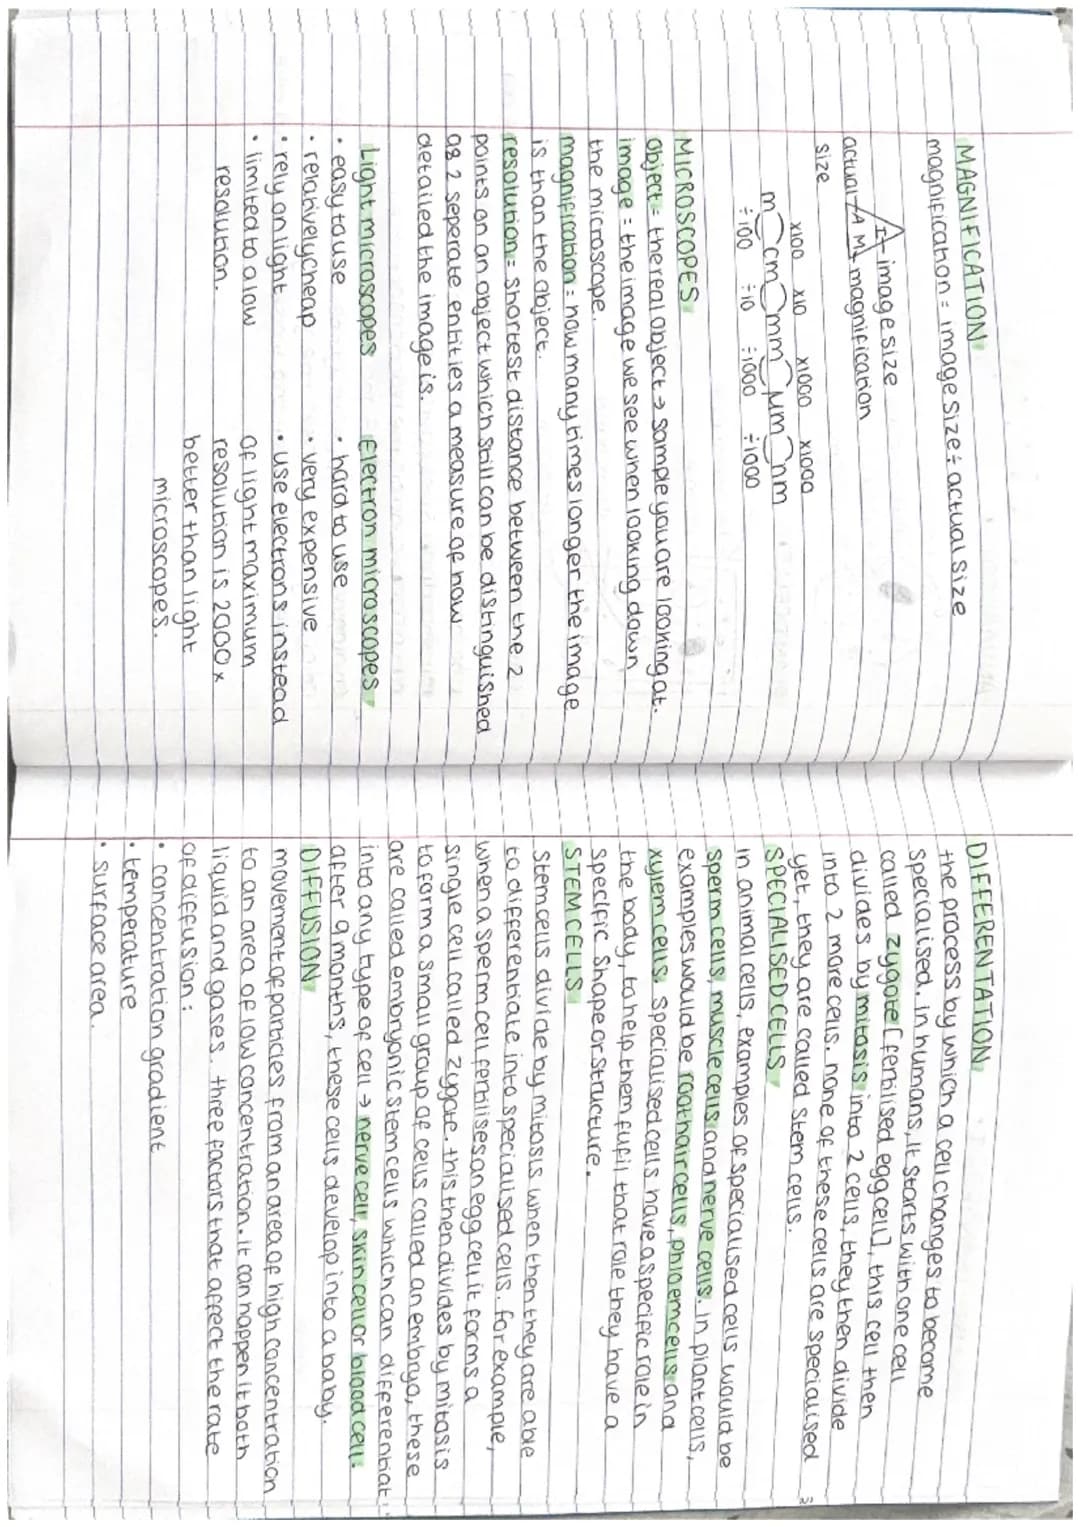 MAGNIFICATION
magnification = image size ÷ actual size
I image size
actual A M magnification
size
x100 x10 x1000 x1000
m cm mm µm nm
÷100 ÷10 ÷1000 ÷1000
MICROSCOPES
object = the real object → sample you are looking at.
image = the image we see when looking down
the microscope.
magnification = how many times longer the image
is than the object.
resolution = shortest distance between the 2
points on an object which still can be distinguished
as 2 seperate entities a measure of how
detailed the image is.
Light microscopes
• easy to use
• relatively cheap
• rely on light
• limited to a low
resolution.
Electron microscopes
• hard to use
• very expensive
• use electrons instead
of light maximum
resolution is 2000x
better than light
microscopes.
DIFFERENTATION
the process by which a cell changes to become
specialised. in humans, it starts with one cell
called zygote [fertilised egg cell], this cell then
divides by mitosis into 2 cells, they then divide
into 2 more cells. none of these cells are specialised
yet, they are called stem cells.
SPECIALISED CELLS
in animal cells, examples of specialised cells would be
sperm cells, muscle cells and nerve cells. In plant cells,
examples would be root hair cells, phloem cells and
xylem cells. specialised cells have a specific role in
the body, to help them fufil that role they have a
specific shape or structure.
STEM CELLS
stem cells divide by mitosis when then they are able
to differentiate into specialised cells. for example,
when a sperm cell fertilises an egg cell it forms a
single cell called zygote. this then divides by mitosis
to form a small group of cells called an embryo, these
are called embryonic stem cells which can differentiat
into any type of cell → nerve cell, skin cell or blood cell.
after 9 months, these cells develop into a baby.
DIFFUSION
movement of particles from an area of high concentration
to an area of low concentration. it can happen it both
liquid and gases. three factors that affect the rate
of diffusion:
• concentration gradient
• temperature
• surface area.